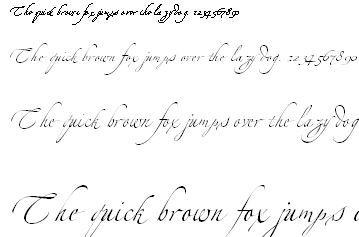 The quick brown fox jumps over the lazy dog. 1234567890
The quick brown fox jumps over the lazy dog. 1234567890
The quick brown fox jumps over the lazy dog
The quick brown fox jumps o